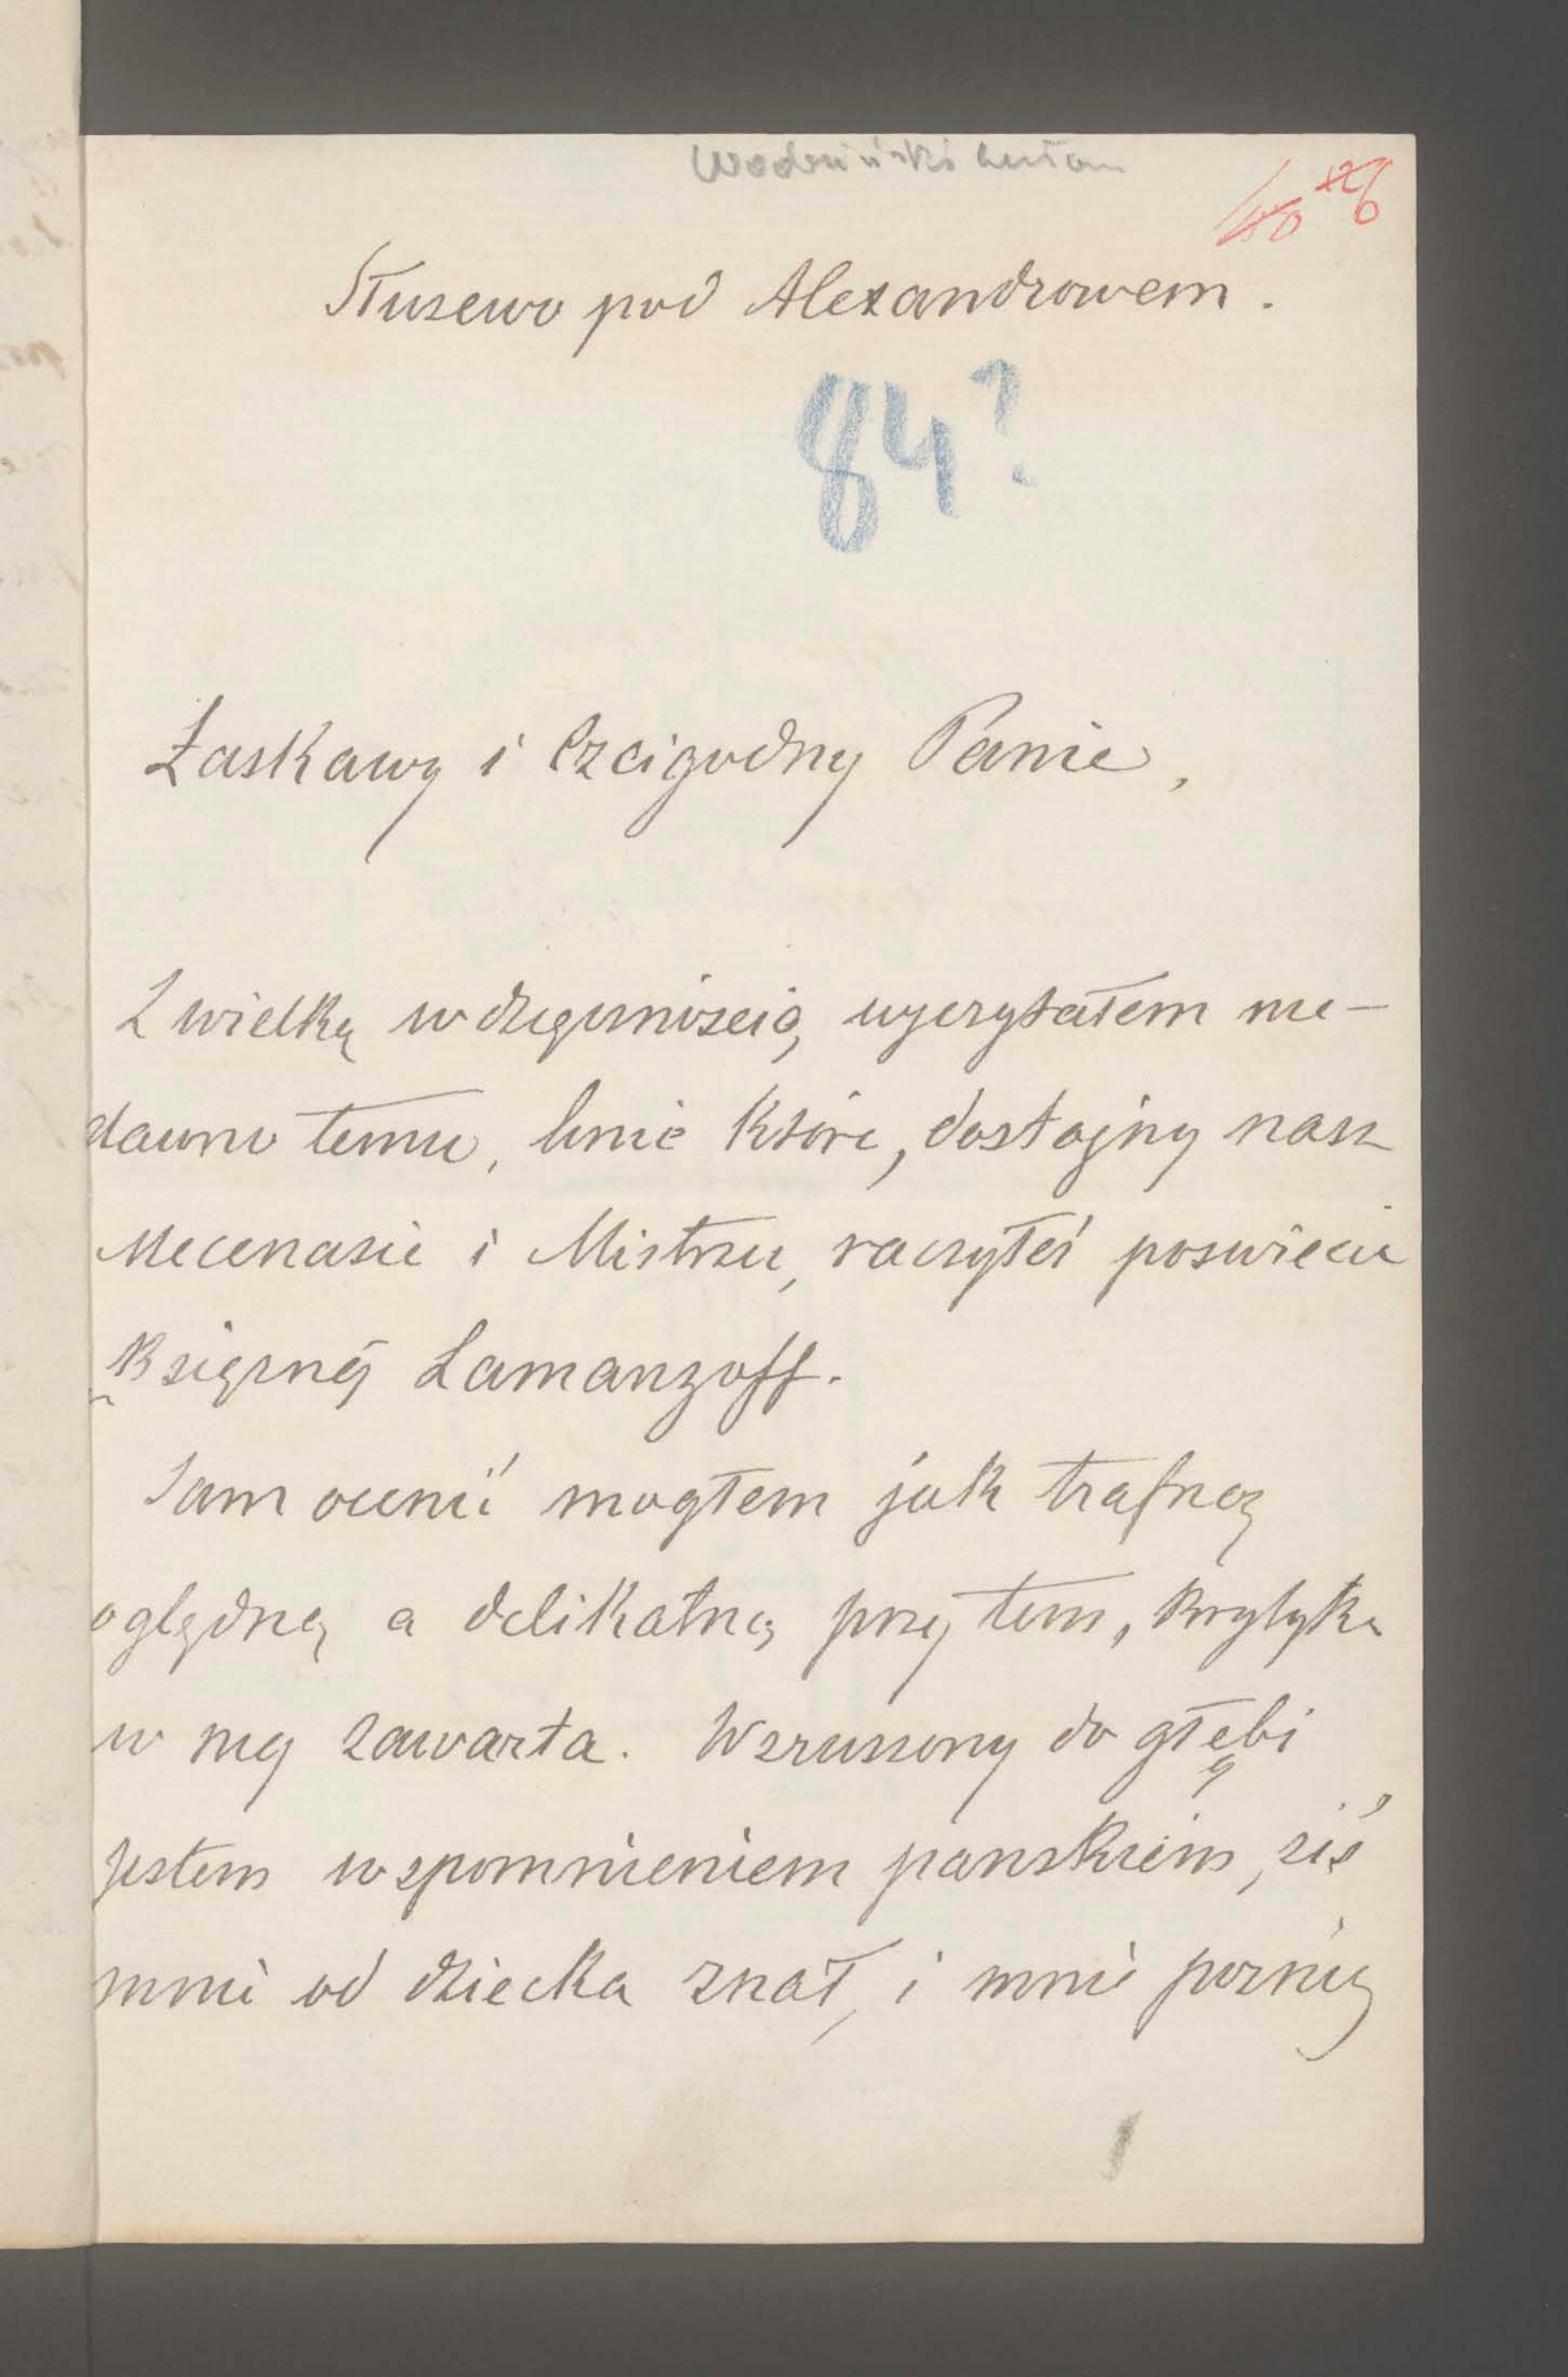 Wodziński Antoni
26
Służewo pod Alexandrowem.
84?
Łaskawy i Czcigodny Panie,
Z wielką wdzięcznością, wyczytałem nie-
dawno temu, linie które, dostojny nasz
Mecenasie i Mistrzu, raczyłeś poswiecić
Księżnéj Lamanzoff.
Sam ocenić mogłem jak trafną
oględną a delikatną przy tem, krytyka
w niej zawarta. Wzruszony do głębi
jestem wspomnieniem panskiem, żiś
mnie od dziecka znał, i mnie pozniej